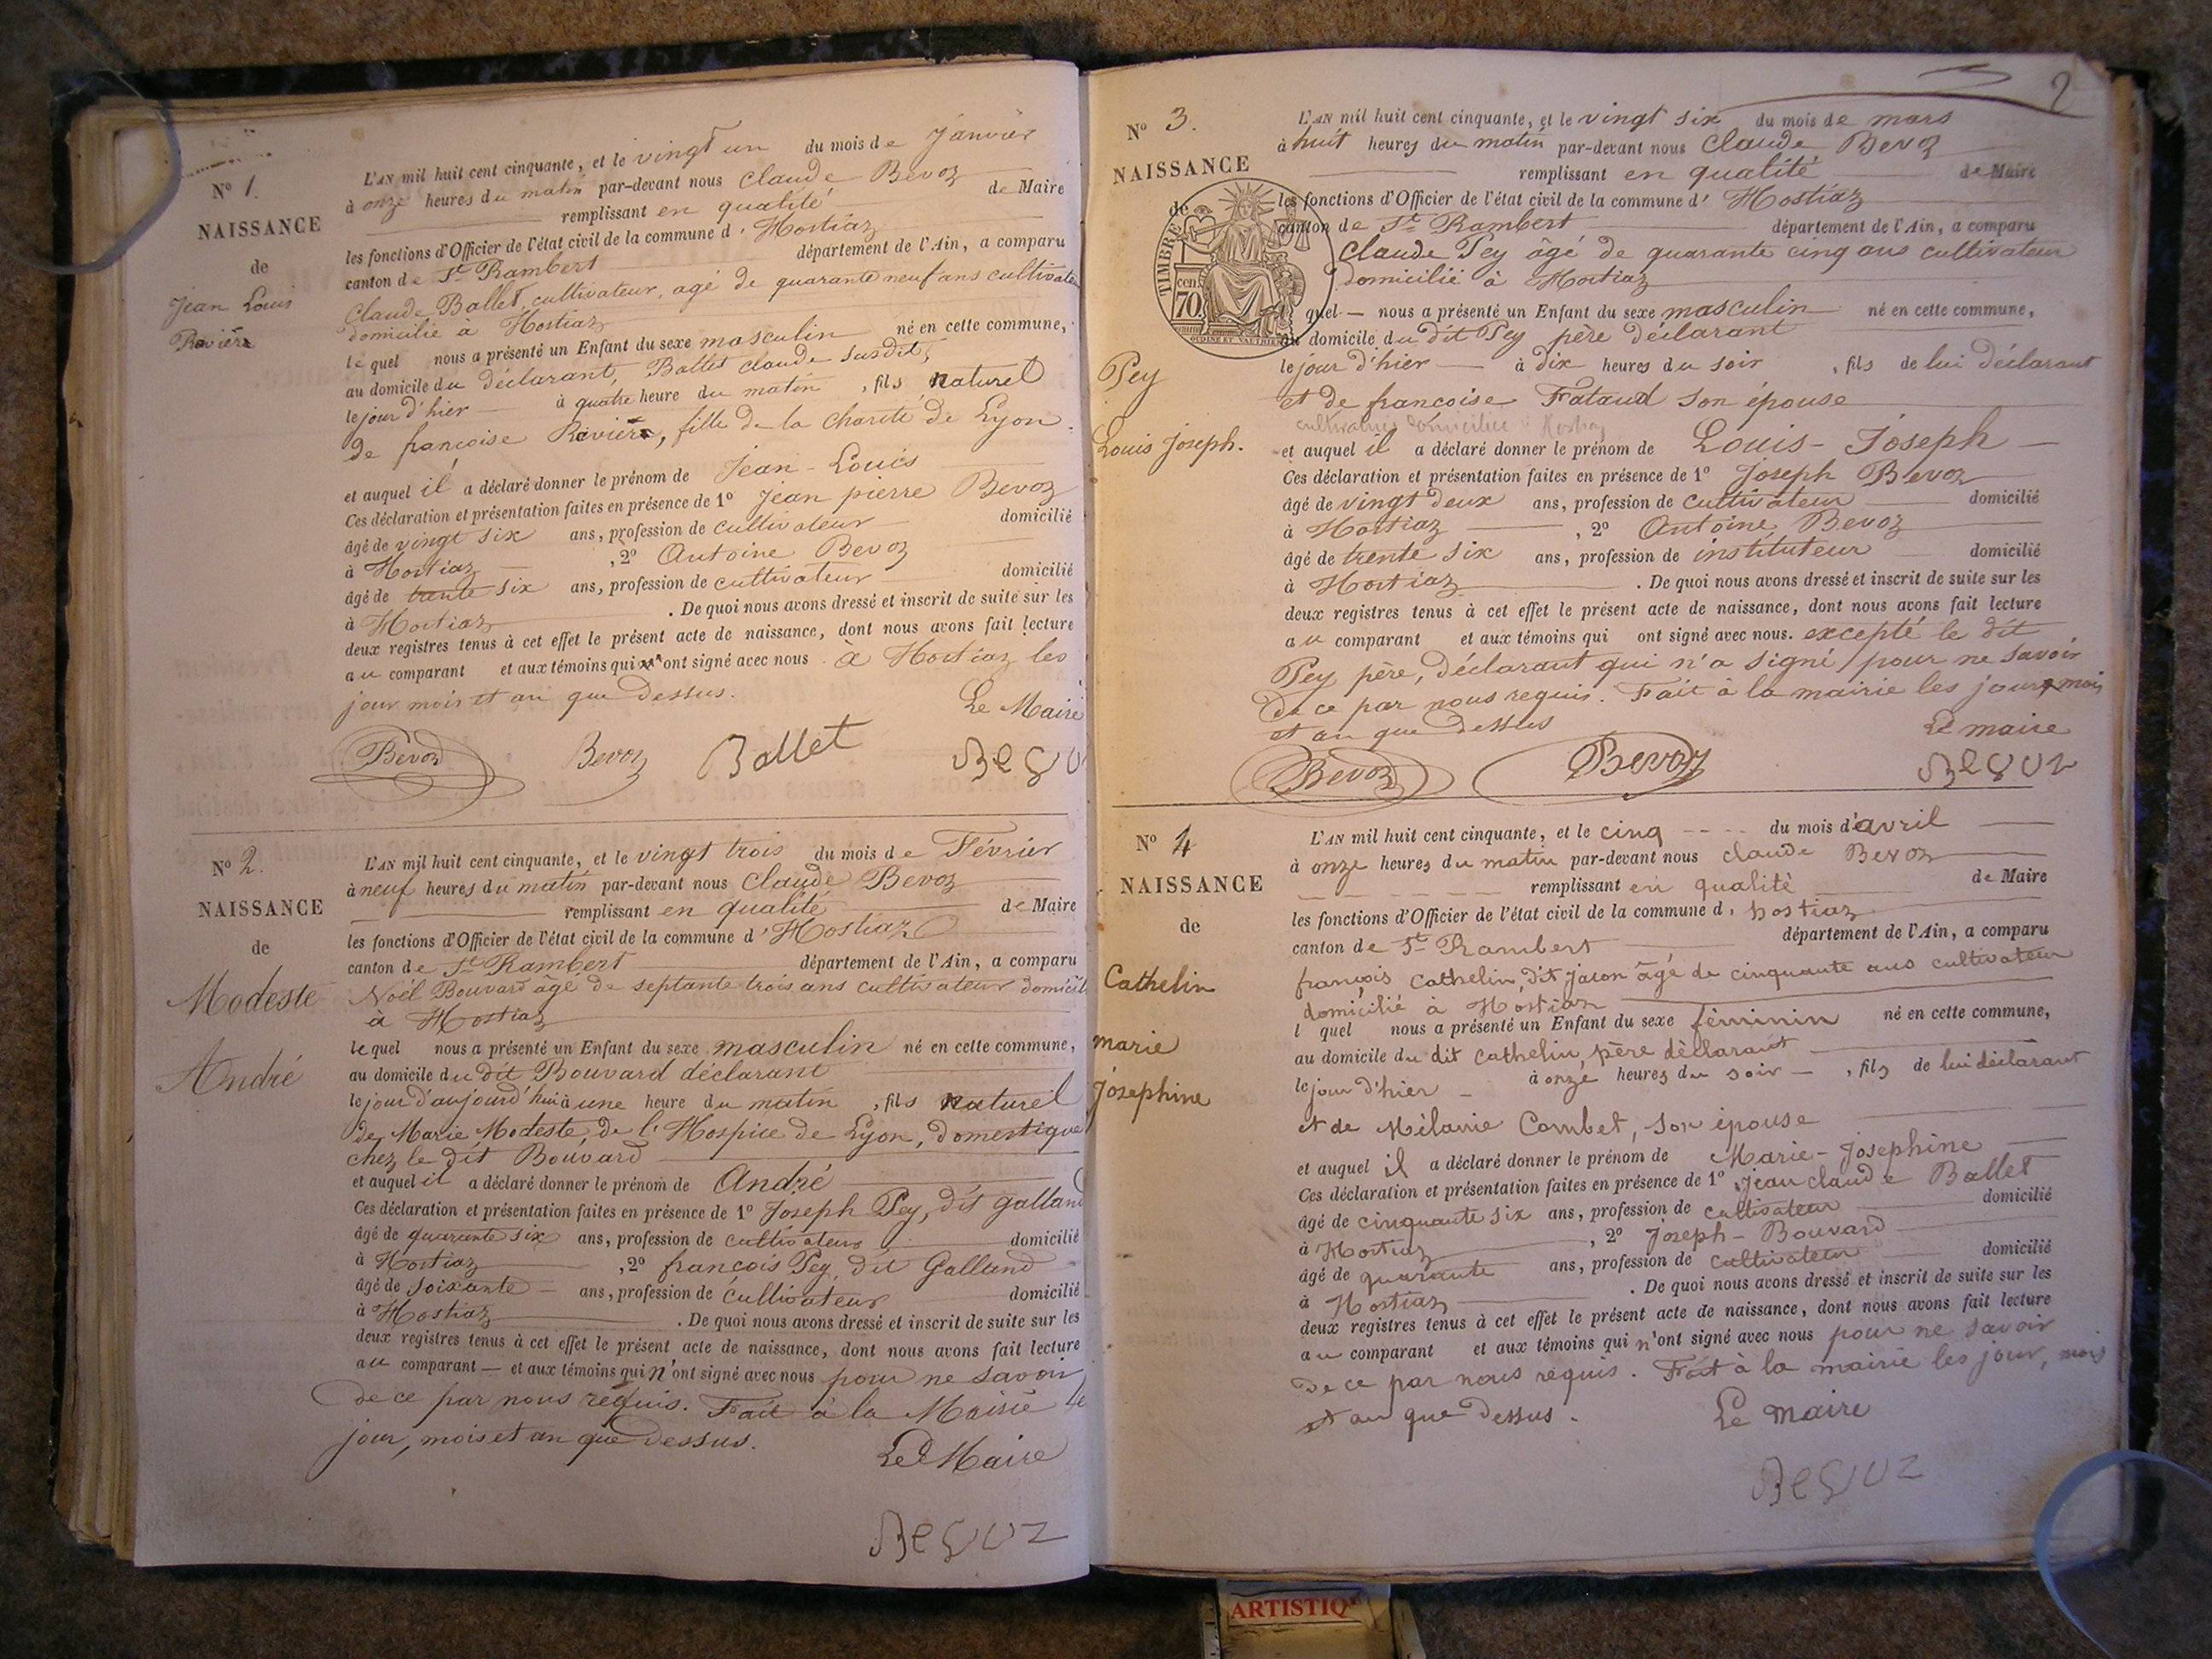 N° 1.
NAISSANCE
de
Jean Louis
Rivière
L'AN mil huit cent cinquante, et le vingt un du mois de Janvier
à onze heures du matin par-devant nous Claude Bevoz
remplissant en qualité de Maire
les fonctions d'Officier de l'état civil de la commune d' Hostiaz
canton de St Rambert département de l'Ain, a comparu
Claude Ballet, cultivateur, agé de quarante neuf ans cultivateu
domicilié à Hostiaz
le quel nous a présenté un Enfant du sexe masculin né en cette commune,
au domicile du déclarant, Ballet claude susdit,
le jour d'hier à quatre heure du matin, fils naturel
de francoise Rivière, fille de la charité de Lyon.
et auquel il a déclaré donner le prénom de Jean-Louis
Ces déclaration et présentation faites en présence de 1° Jean pierre Bevoz
âgé de vingt six ans, profession de cultivateur domicilié
à Hostiaz, 2° Antoine Bevoz
âgé de trente six ans, profession de cultivateur domicilié
à Hostiaz. De quoi nous avons dressé et inscrit de suite sur les
deux registres tenus à cet effet le présent acte de naissance, dont nous avons fait lecture
au comparant et aux témoins qui ont signé avec nous à Hostiaz les
jour mois et an que dessus. Le Maire
Bevoz Bevoz Ballet Bevo
N° 2.
NAISSANCE
de
Modeste
André
L'AN mil huit cent cinquante, et le vingt trois du mois de Février
à neuf heures du matin par-devant nous Claude Bevoz
remplissant en qualité de Maire
les fonctions d'Officier de l'état civil de la commune d' Hostiaz
canton de St Rambert département de l'Ain, a comparu
Noël Bouvard âgé de septante trois ans cultivateur domicili
à Hostiaz
le quel nous a présenté un Enfant du sexe masculin né en cette commune,
au domicile du dit Bouvard déclarant
le jour d'aujourd'hui à une heure du matin, fils naturel
de Marie Modeste, de l'Hospice de Lyon, domestique
chez le dit Bouvard
et auquel il a déclaré donner le prénom de André
Ces déclaration et présentation faites en présence de 1° Joseph Pey, dit galland
âgé de quarante six ans, profession de cultivateur domicilié
à Hostiaz, 2° francois Pey, dit Galland
âgé de soixante ans, profession de cultivateur domicilié
à Hostiaz. De quoi nous avons dressé et inscrit de suite sur les
deux registres tenus à cet effet le présent acte de naissance, dont nous avons fait lecture
au comparant et aux témoins qui n'ont signé avec nous pour ne savoir
de ce par nous requis. Fait à la Mairie le
jour, mois et an que dessus.
Le Maire
Bevoz
2
N° 3.
NAISSANCE
de
Pey
Louis Joseph.
TIMBRE
cen.
70
OUDINE ET VAUTHIER
L'AN mil huit cent cinquante, et le vingt six du mois de mars
à huit heures du matin par-devant nous Claude Bevoz
remplissant en qualité de Maire
les fonctions d'Officier de l'état civil de la commune d' Hostiaz
canton de St Rambert département de l'Ain, a comparu
Claude Pey âgé de quarante cinq ans cultivateur
domicilié à Hostiaz
quel nous a présenté un Enfant du sexe masculin né en cette commune,
au domicile du dit Pey père déclarant
le jour d'hier à dix heures du soir, fils de lui déclarant
et de francoise Fataud son épouse
cultivatrice domiciliée à Hostiaz
et auquel il a déclaré donner le prénom de Louis-Joseph
Ces déclaration et présentation faites en présence de 1° Joseph Bevoz
âgé de vingt deux ans, profession de cultivateur domicilié
à Hostiaz, 2° Antoine Bevoz
âgé de trente six ans, profession de instituteur domicilié
à Hostiaz. De quoi nous avons dressé et inscrit de suite sur les
deux registres tenus à cet effet le présent acte de naissance, dont nous avons fait lecture
au comparant et aux témoins qui ont signé avec nous. excepté le dit
Pey père, déclarant qui n'a signé pour ne savoir
de ce par nous requis. Fait à la mairie les jour, mois
et an que dessus Le maire
Bevoz Bevoz Bevoz
N° 4
NAISSANCE
de
Cathelin
marie
Josephine
L'AN mil huit cent cinquante, et le cinq du mois d'avril
à onze heures du matin par-devant nous claude Bevoz
remplissant en qualité de Maire
les fonctions d'Officier de l'état civil de la commune d' hostiaz
canton de St Rambert département de l'Ain, a comparu
françois Cathelin, dit jacon âgé de cinquante ans cultivateur
domicilié à Hostiaz
l quel nous a présenté un Enfant du sexe féminin né en cette commune,
au domicile du dit cathelin, père déclarant
le jour d'hier à onze heures du soir, fils de lui déclarant
et de Mélanie Combet, son épouse
et auquel il a déclaré donner le prénom de Marie-Josephine
Ces déclaration et présentation faites en présence de 1° Jean claude Ballet
âgé de cinquante six ans, profession de cultivateur domicilié
à Hostiaz, 2° Joseph-Bouvard
âgé de quarante ans, profession de cultivateur domicilié
à Hostiaz. De quoi nous avons dressé et inscrit de suite sur les
deux registres tenus à cet effet le présent acte de naissance, dont nous avons fait lecture
au comparant et aux témoins qui n'ont signé avec nous pour ne savoir
de ce par nous requis. Fait à la mairie les jour, mois
et an que dessus. Le maire
Bevoz
ARTISTIQ